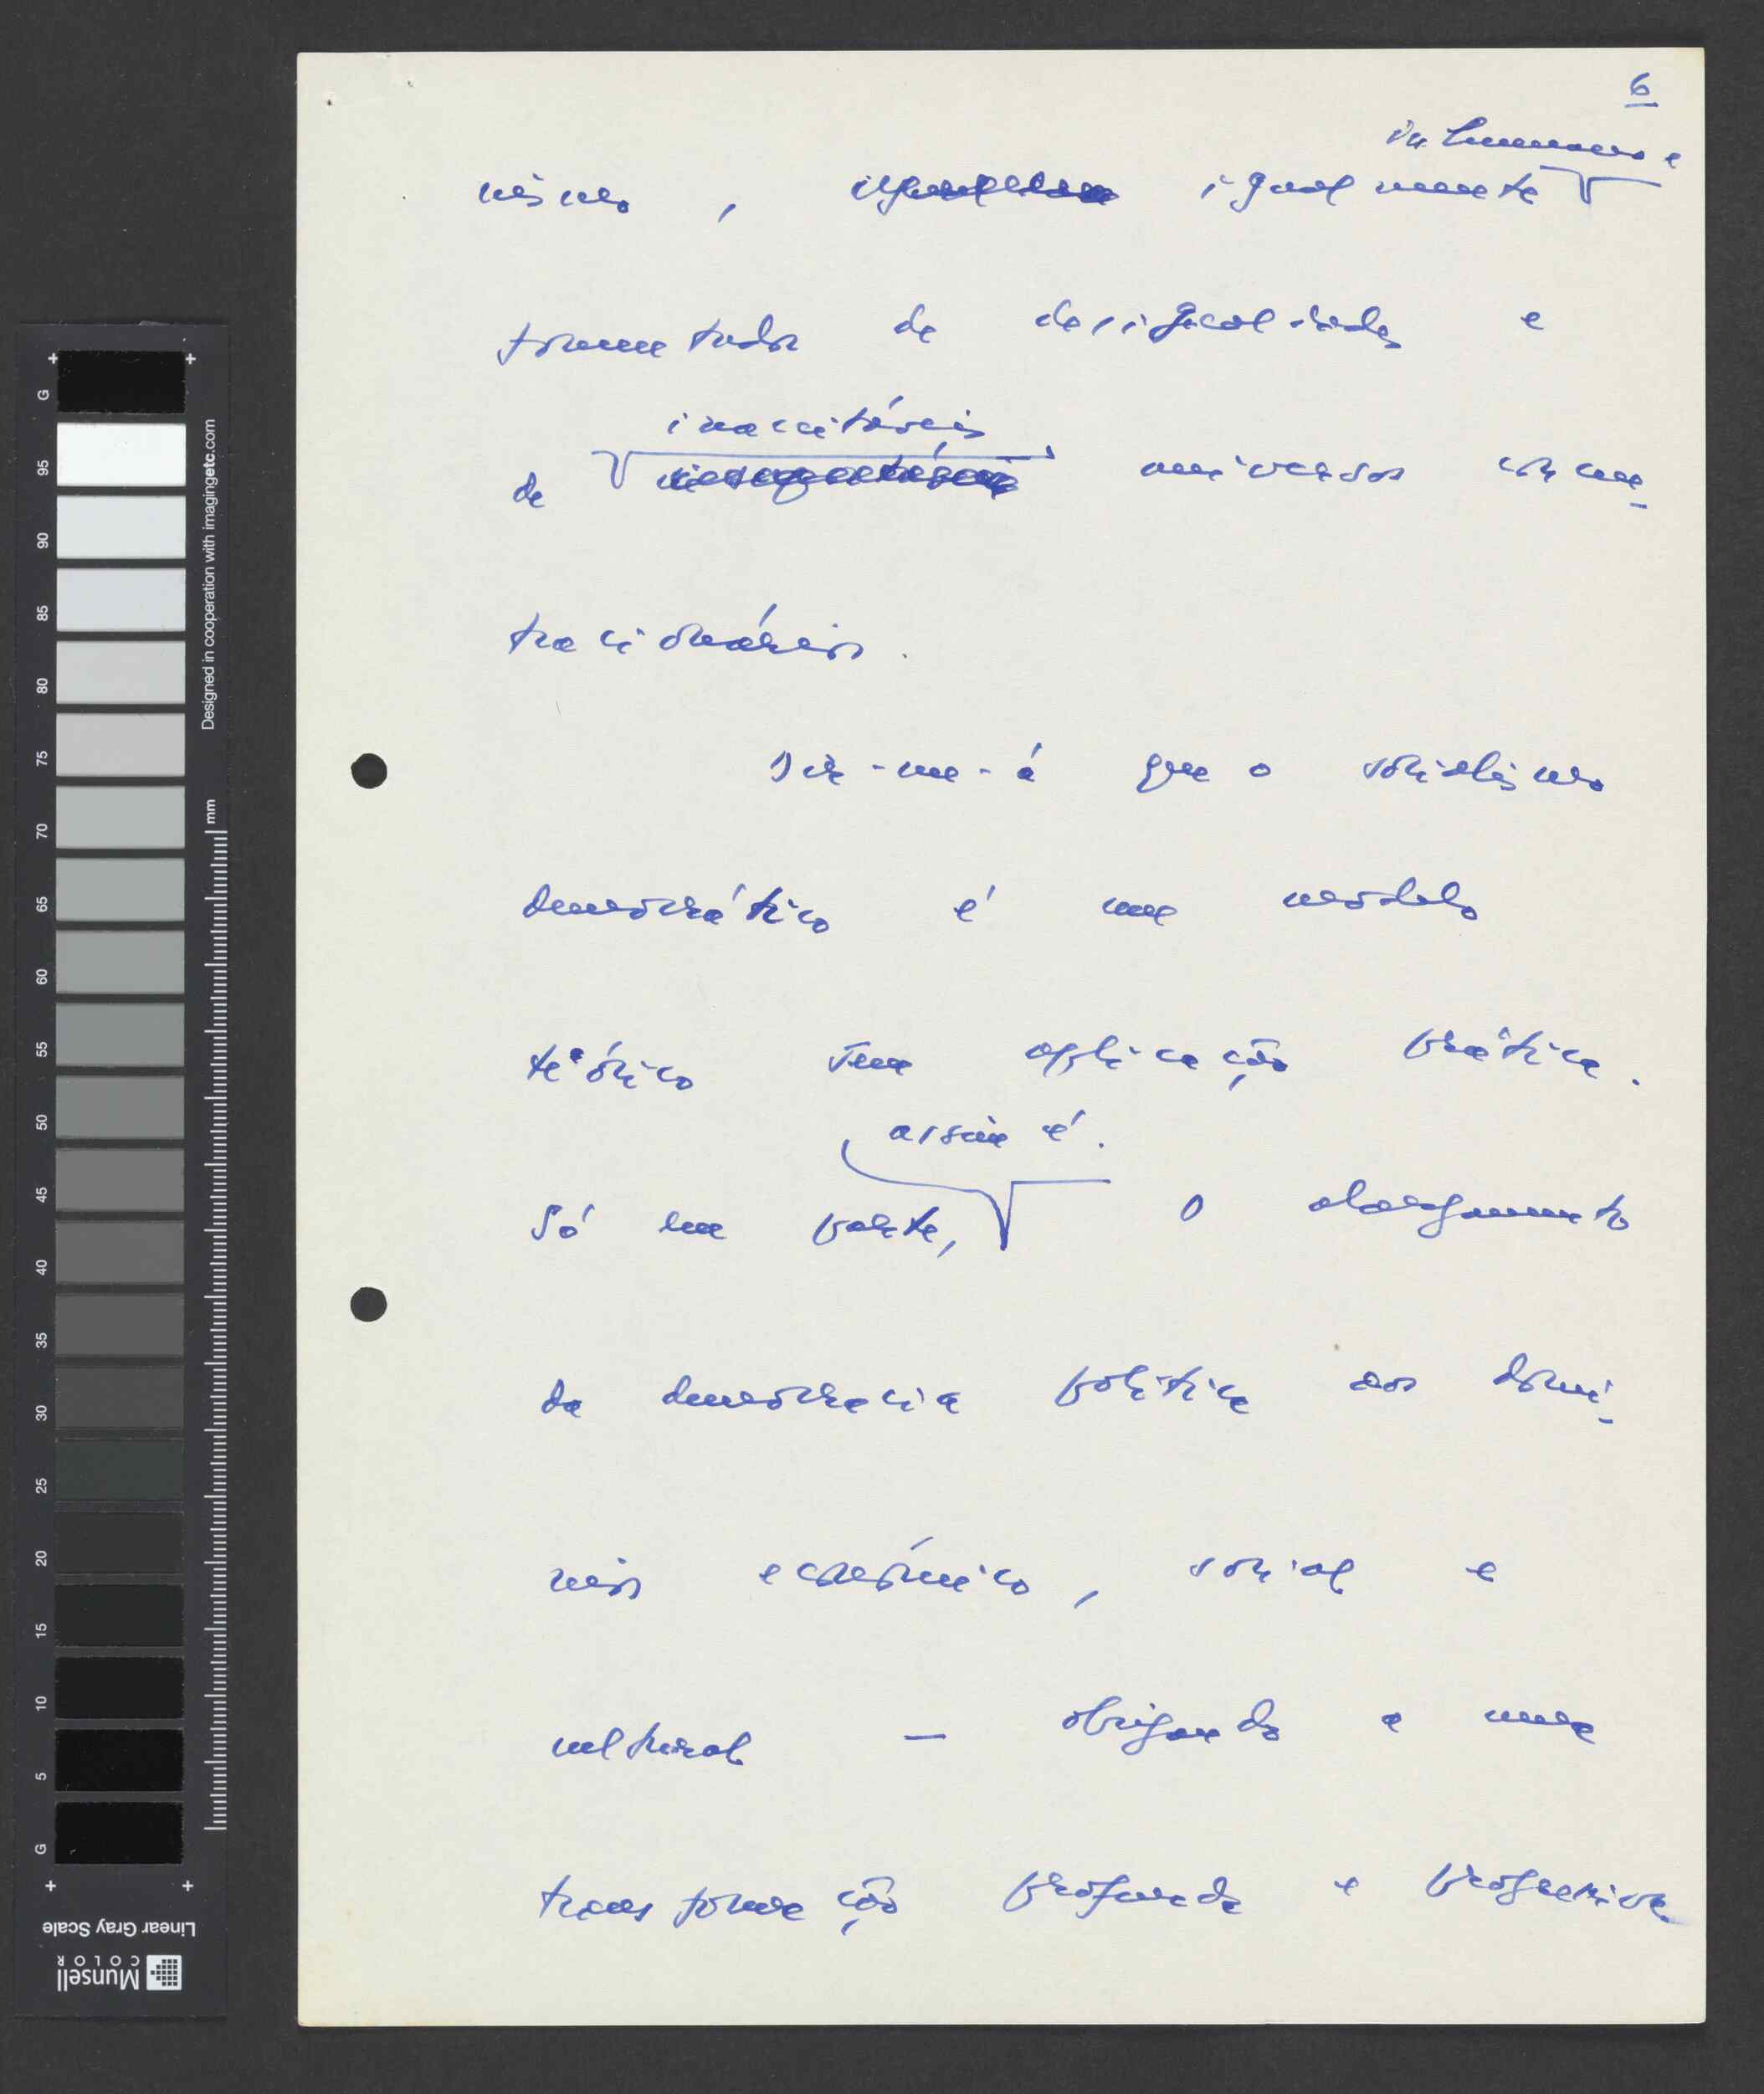 6
inhumano e
nismo, igualmente
fomentador de desigualdades e
inaceitáveis
de universos concen-
tracionários.
Dir-me-á que o socialismo
democrático é um modelo
teórico sem aplicação prática.
assim é.
Só em parte, O alargamento
da democracia política aos domí-
nios económico, social e
cultural — obrigando a uma
transformação profunda e progressiva
G
95
90
85
80
75
70
65
60
55
50
45
40
35
30
25
20
15
10
5
G
Designed in cooperation with imagingetc.com
mm
Linear Gray Scale
Munsell
COLOR